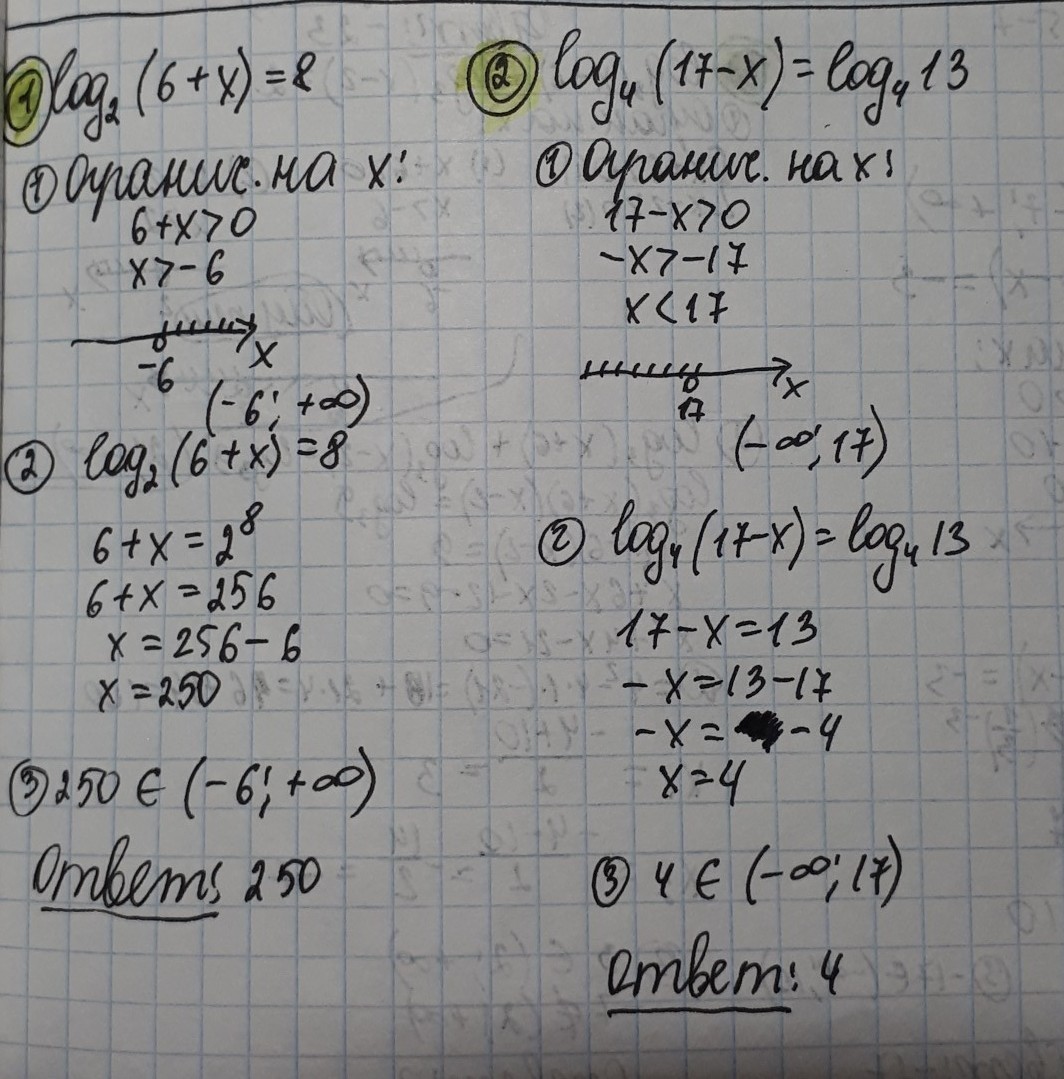 ① log₂(6+x)=8
① Огранич. на x:
6+x>0
x>-6
-6 x
(-6; +∞)
② log₂(6+x)=8
6+x=2⁸
6+x=256
x=256-6
x=250
③ 250 ∈ (-6; +∞)
Ответ: 250
② log₄(17-x)=log₄13
① Огранич. на x:
17-x>0
-x>-17
x<17
17 x
(-∞; 17)
② log₄(17-x)=log₄13
17-x=13
-x=13-17
-x= -4
x=4
③ 4 ∈ (-∞; 17)
Ответ: 4